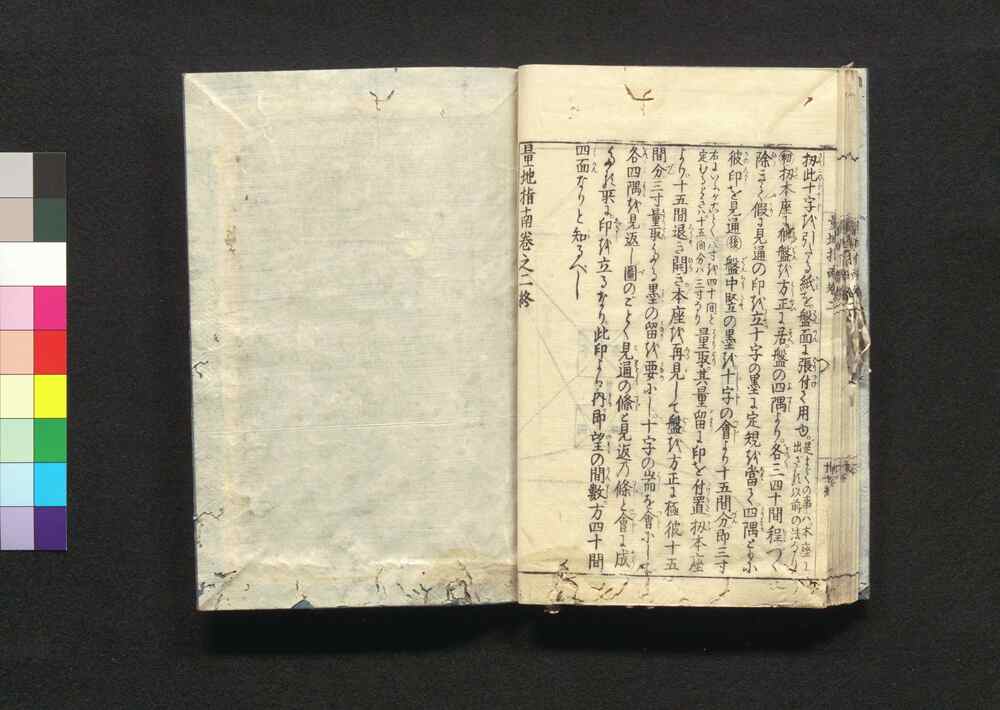 扨此十字を引たる紙を盤面に張付て用也 是までの事ハ本座に出ざる以前の法なり
扨本座に盤を方正に居盤の四隅より各三四十間程づゝ
除きて假に見通の印を立十字の墨に定規を當て四隅ともに
彼印を見通後盤中竪の墨を十字の會より十五間分即三寸
量取其量留に印を付置扨本座
より十五間退き開き本座を再見して盤を方正に極彼十五
間分三寸量取たる墨の留を要にし十字の端を會にし
各四隅を見返し圖のごとく見通の條と見返の條と會て成
たる処に印を立るなり此印より内即望の間數方四十間
四面なりと知るべし
量地指南巻之二終